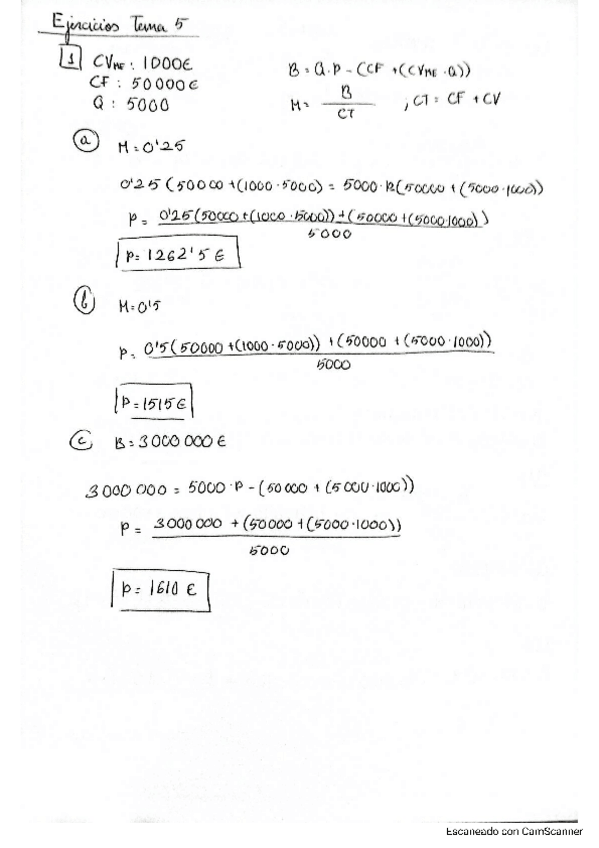 Ejercicios Tema 5
1 CVMe: 1000€
CF: 50000€
Q: 5000
B = Q.P - (CF + (CVMe · Q))
M = B / CT , CT = CF + CV
a M = 0'25
0'25 (50000 + (1000 · 5000) = 5000 · P - (50000 + (5000 · 1000))
P = 0'25 (50000 + (1000 · 5000)) + (50000 + (5000 · 1000)) / 5000
P = 1262'5 €
b M = 0'5
P = 0'5 (50000 + (1000 · 5000)) + (50000 + (5000 · 1000)) / 5000
P = 1515 €
c B = 3000 000 €
3 000 000 = 5000 · P - (50 000 + (5000 · 1000))
P = 3000000 + (50000 + (5000 · 1000)) / 5000
P = 1610 €
Escaneado con CamScanner